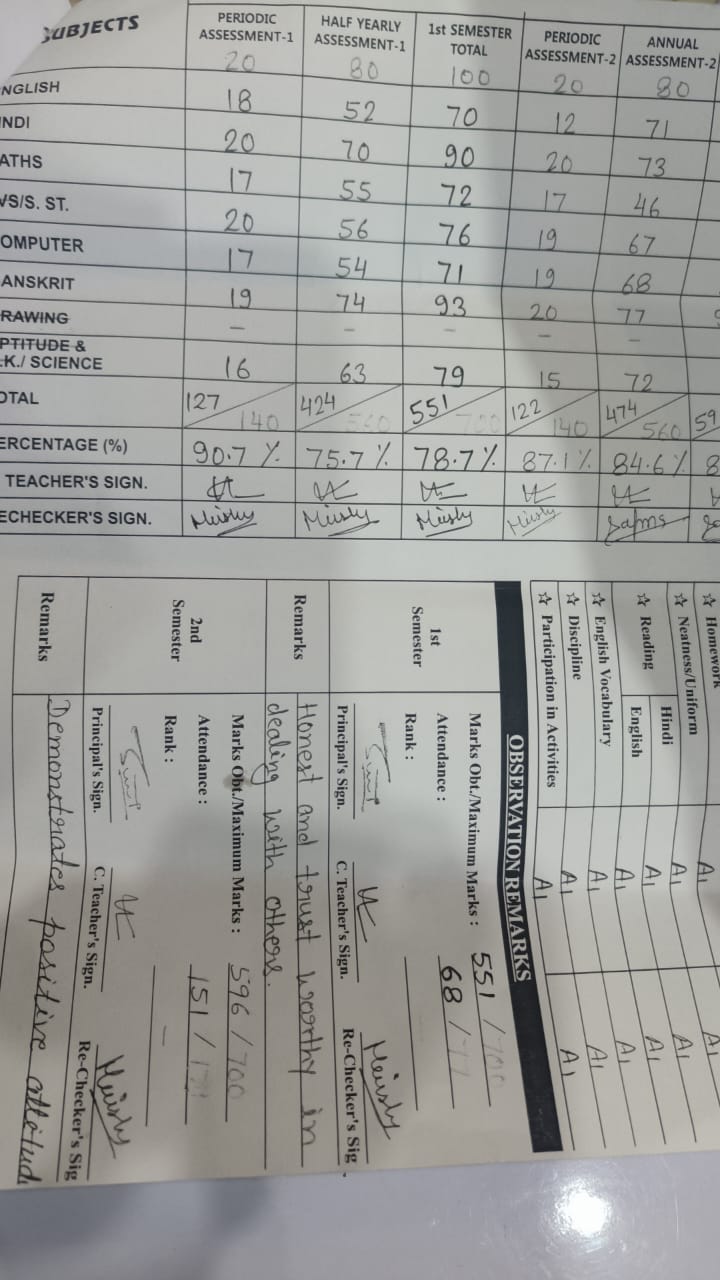 SUBJECTS PERIODIC ASSESSMENT-1 HALF YEARLY ASSESSMENT-1 1st SEMESTER TOTAL PERIODIC ASSESSMENT-2 ANNUAL ASSESSMENT-2
20 80 100 20 80
NGLISH 18 52 70 12 71
NDI 20 70 90 20 73
ATHS 17 55 72 17 46
VS/S. ST. 20 56 76 19 67
OMPUTER 17 54 71 19 68
ANSKRIT 19 74 93 20 77
RAWING – – – – –
PTITUDE &
.K./ SCIENCE 16 63 79 15 72
OTAL 127/140 424/560 551/700 122/140 474/560 59
ERCENTAGE (%) 90.7 % 75.7 % 78.7 % 87.1 % 84.6 % 8
TEACHER'S SIGN.
ECHECKER'S SIGN.
☆ Homework A1 A1
☆ Neatness/Uniform A1 A1
☆ Reading Hindi A1 A1
English A1 A1
☆ English Vocabulary A1 A1
☆ Discipline A1 A1
☆ Participation in Activities A1
OBSERVATION REMARKS
1st Semester
Marks Obt./Maximum Marks : 551/700
Attendance : 68/77
Rank :
Principal's Sign. C. Teacher's Sign. Re-Checker's Sig
Remarks Honest and trust worthy in
dealing with others.
2nd Semester
Marks Obt./Maximum Marks : 596/700
Attendance : 151/
Rank : –
Principal's Sign. C. Teacher's Sign. Re-Checker's Sig
Remarks Demonstrates positive attitud